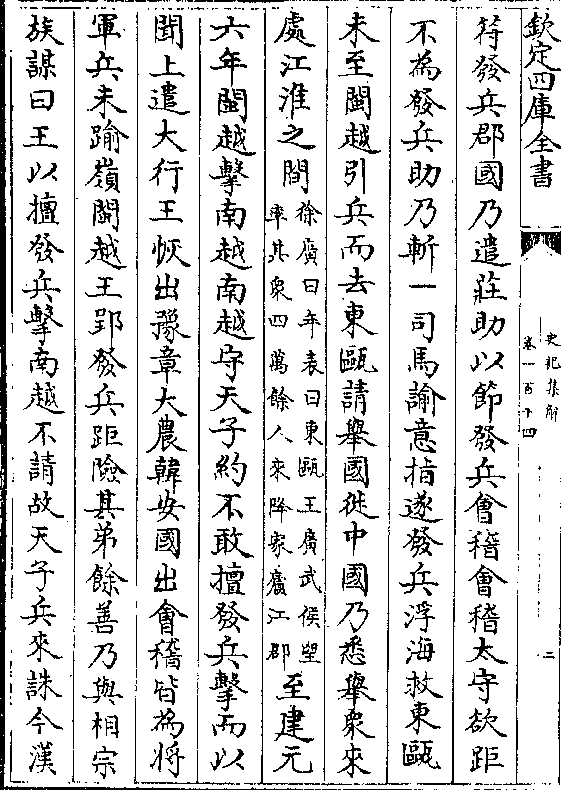 欽定四庫全書
史記集解
卷一百十四
二
符發兵郡國乃遣莊助以節發兵會稽會稽太守欲距
不為發兵助乃斬一司馬諭意指遂發兵浮海救東甌
未至閩越引兵而去東甌請舉國徙中國乃悉舉衆來
處江淮之閒徐廣曰年表曰東甌王廣武侯望
率其衆四萬餘人來降家廬江郡至建元
六年閩越擊南越南越守天子約不敢擅發兵擊而以
聞上遣大行王恢出豫章大農韓安國出會稽皆為將
軍兵未踰嶺閩越王郢發兵距險其弟餘善乃與相宗
族謀曰王以擅發兵擊南越不請故天子兵來誅今漢